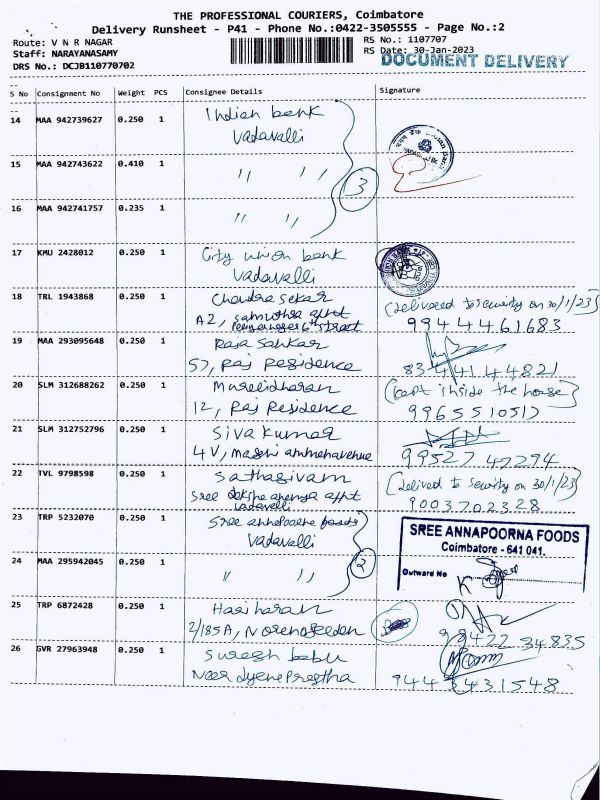 THE PROFESSIONAL COURIERS, Coimbatore
Delivery Runsheet - P41 - Phone No.:0422-3505555 - Page No.:2
Route: V N R NAGAR
RS No.: 1107707
Staff: NARAYANASAMY
RS Date: 30-Jan-2023
DRS No.: DCJB110770702
DOCUMENT DELIVERY
S No Consignment No Weight PCS Consignee Details Signature
14 MAA 942739627 0.250 1 Indian bank
Vadavalli
15 MAA 942743622 0.410 1 " "
3
16 MAA 942741757 0.235 1 " "
17 KMU 2428012 0.250 1 City union bank
Vadavalli
18 TRL 1943868 0.250 1 Chandra Sekar (delivered to security on 30/1/23)
A2, 9944461683
19 MAA 293095648 0.250 1 Raja Sankar
57, Raj Residence 83441 44821
20 SLM 312688262 0.250 1 Muralidharan (kept inside the house)
12, Raj Residence 9965510517
21 SLM 312752796 0.250 1 Siva kumar
4V, 99527 47294
22 TVL 9798598 0.250 1 Sathasivam (delived to security on 30/1/23)
Sree appt 9003702328
Vadavalli
23 TRP 5232070 0.250 1 Sree annapoorna foods
Vadavalli
SREE ANNAPOORNA FOODS
Coimbatore - 641 041.
2
24 MAA 295942045 0.250 1 " "
Outward No
25 TRP 6872428 0.250 1 Hariharan
2/185A, 98422 34835
26 GVR 27963948 0.250 1 Suresh babu
9443431548